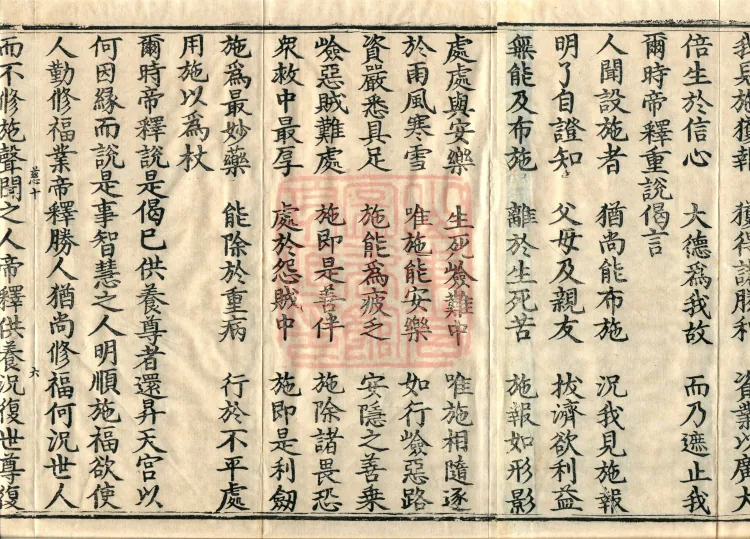 我見施獲報 獲得諸勝利 資業以廣大
倍生於信心 大德爲我故 而乃遮止我
爾時帝釋重說偈言
人聞設施者 猶尚能布施 況我見施報
明了自證知 父母及親友 拔濟欲利益
無能及布施 離於生死苦 施報如形影
處處與安樂 生死嶮難中 唯施相隨逐
於雨風寒雪 唯施能安樂 如行嶮惡路
資嚴悉具足 施能爲疲乏 安隱之善乗
嶮惡賊難處 施即是善伴 施除諸畏恐
衆救中最厚 處於怨賊中 施即是利劔
施爲最妙藥 能除於重病 行於不平處
用施以爲杖
爾時帝釋說是偈已供養尊者還昇天宮以
何因緣而說是事智慧之人明順施福欲使
人勤修福業帝釋勝人猶尚修福何況世人
六
而不修施聲聞之人帝釋供養況復世尊復